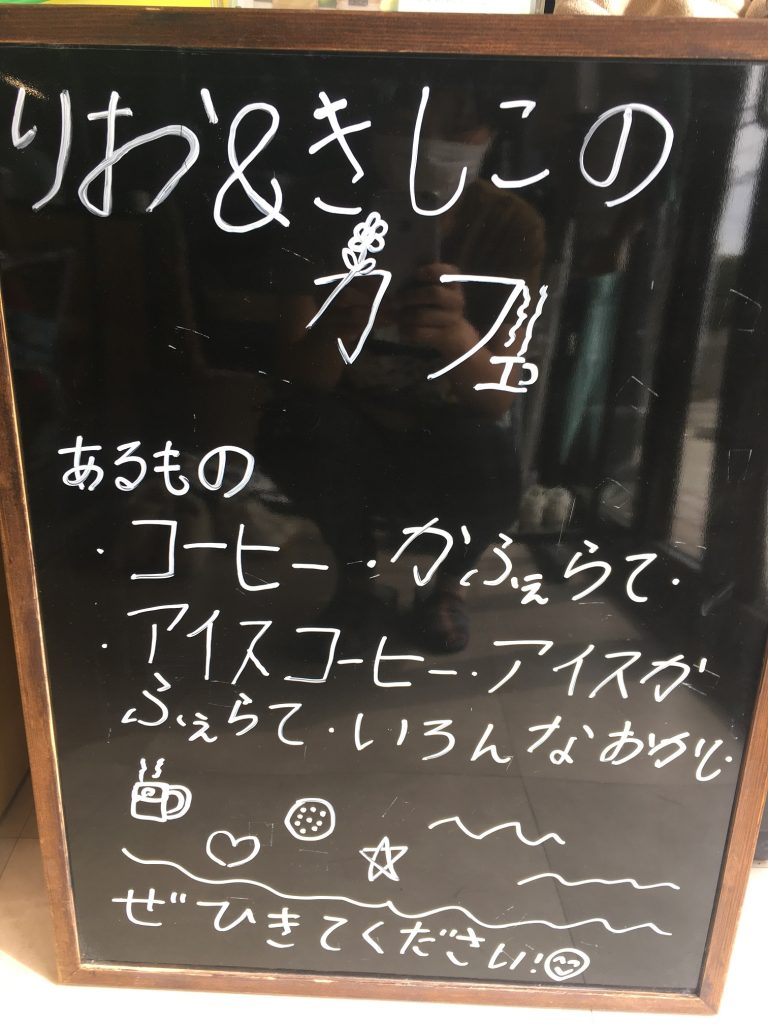 りお&きしこの
カフェ
あるもの
・コーヒー・かふぇらて・
・アイスコーヒー・アイスか
ふぇらて・いろんなおかし
ぜひきてください!